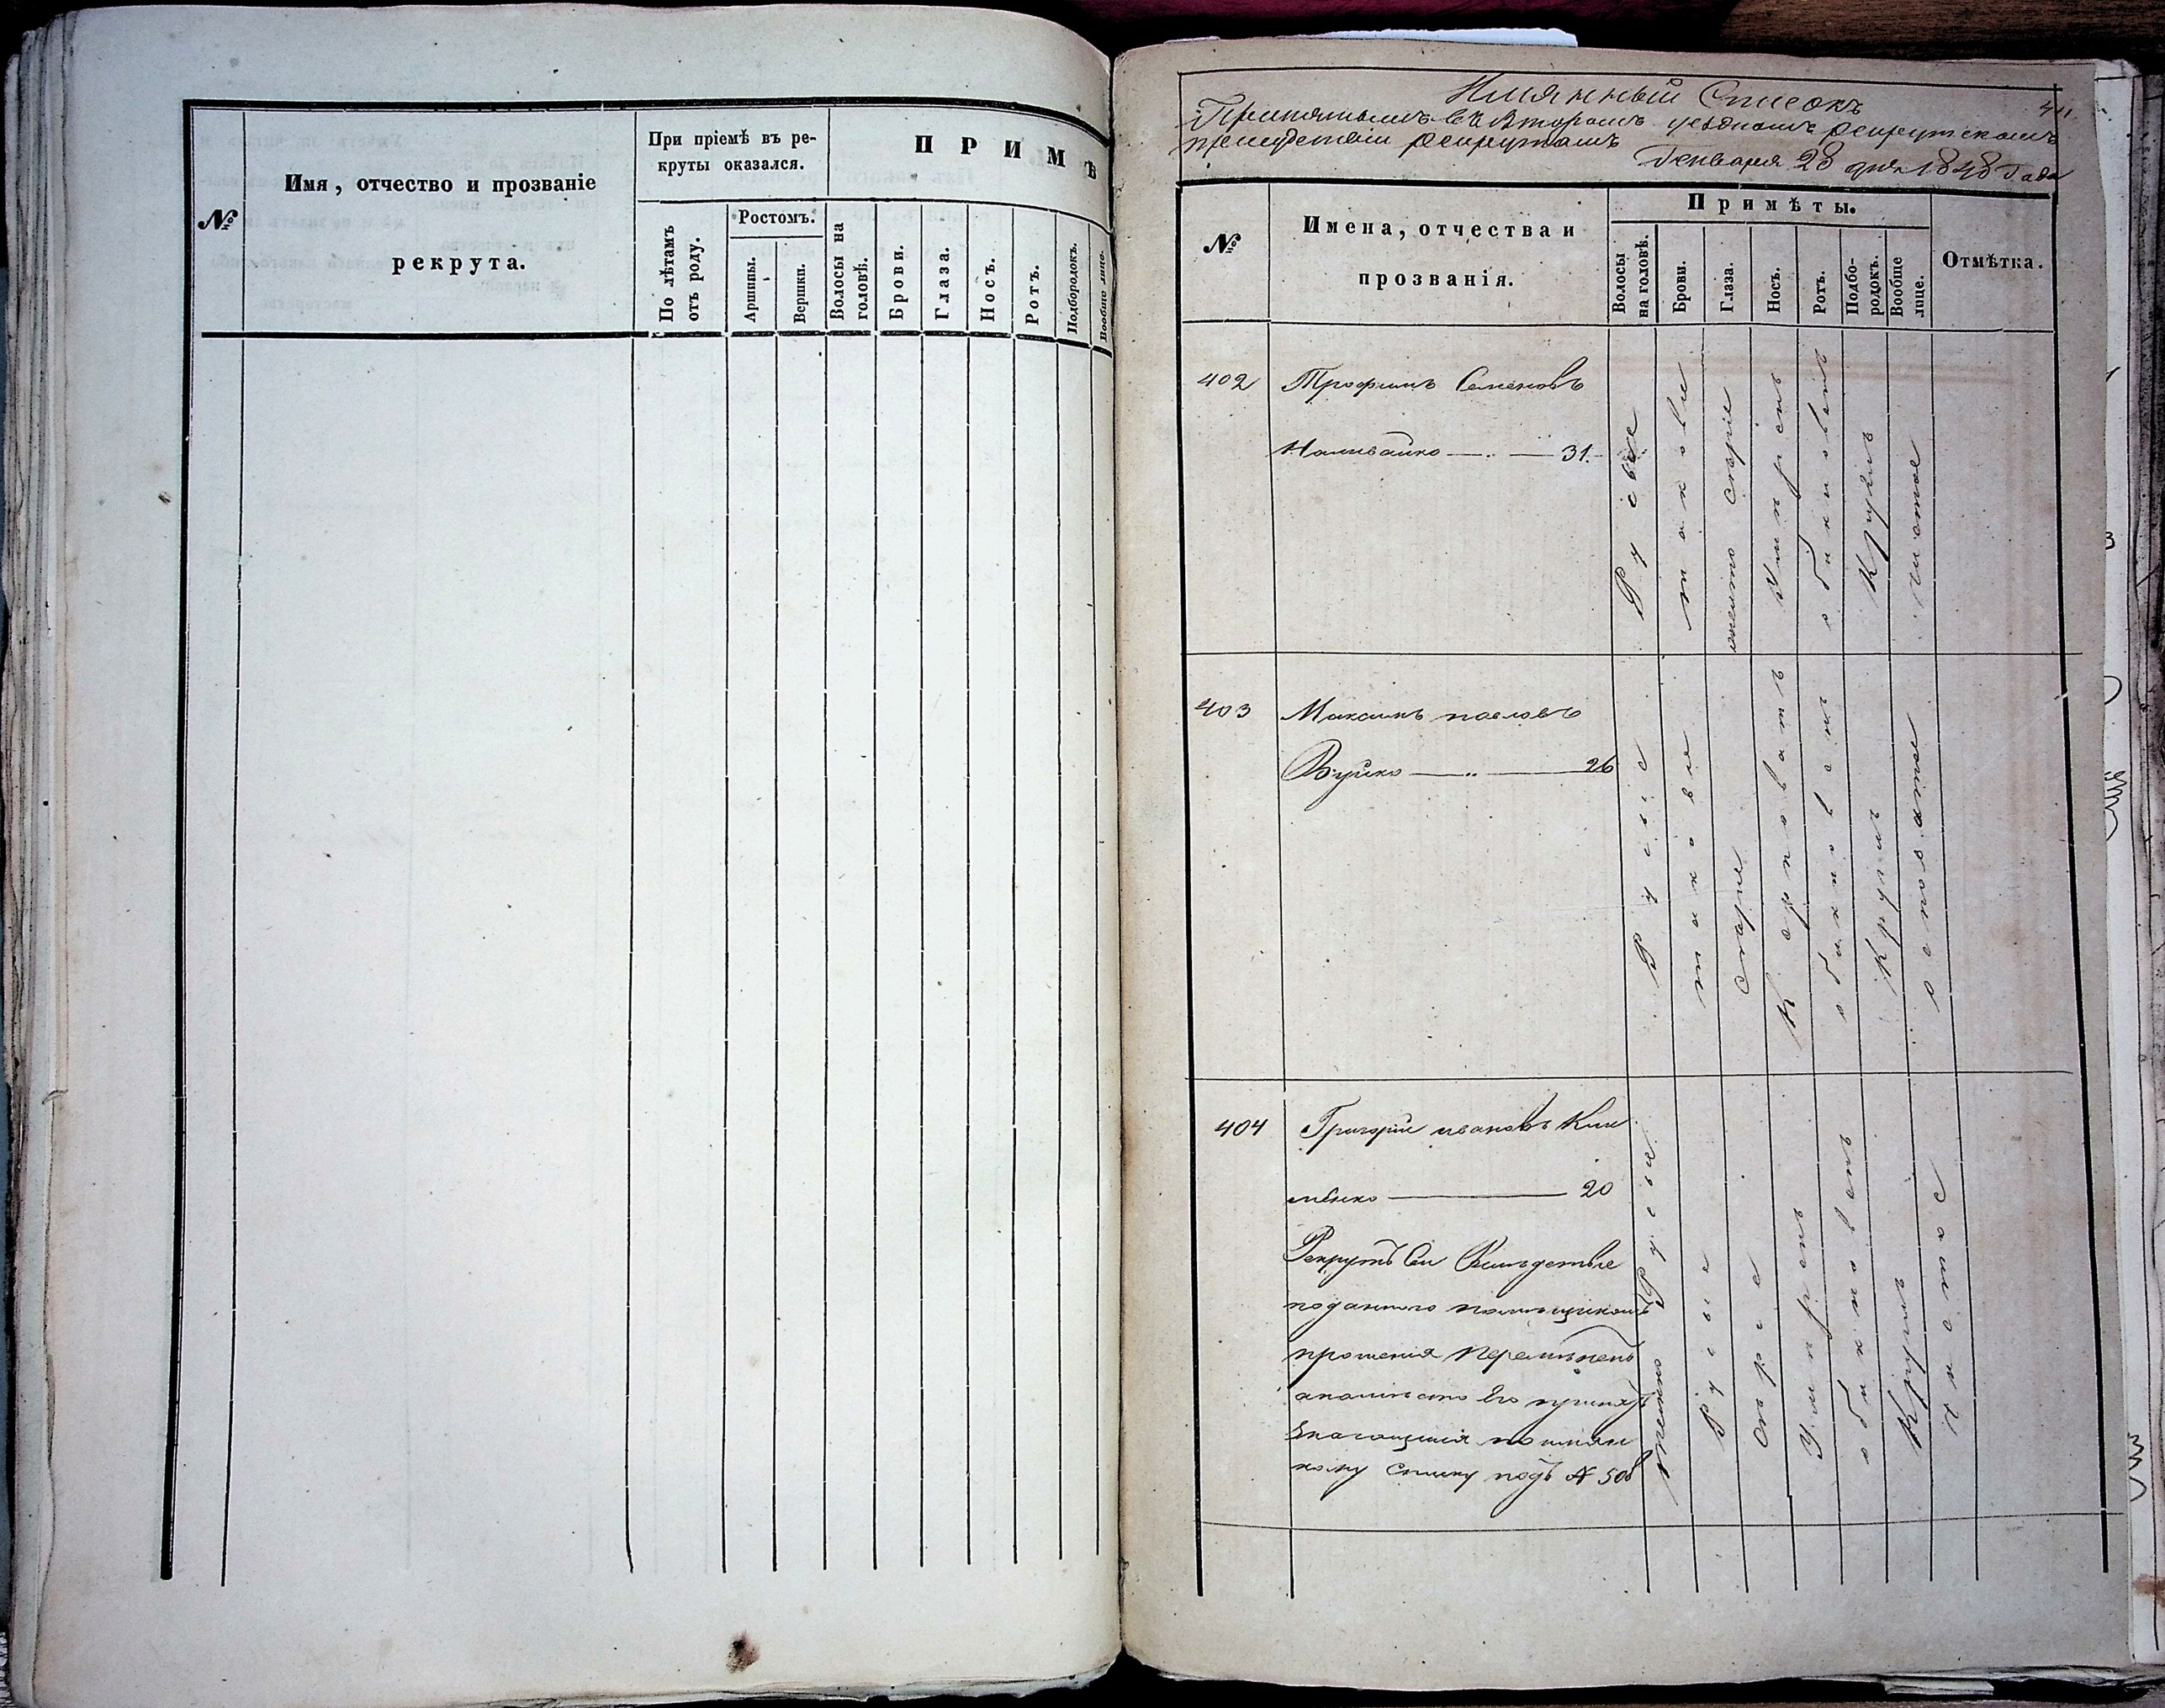 №
Имя, отчество и прозваніе
рекрута.
При пріемѣ въ ре-
круты оказался.
По лѣтамъ
отъ роду.
Ростомъ.
Аршины.
Вершки.
ПРИМѢ
Волосы на
головѣ.
Брови.
Глаза.
Носъ.
Ротъ.
Подбородокъ.
Вообще лице.
Имянный Списокъ
Принятымъ въ Второмъ уѣздномъ рекрутскомъ
присудствіи рекрутамъ
Генваря 28 дня 1848 Года
№
Имена, отчества и
прозванія.
Примѣты.
Волосы
на головѣ.
Брови.
Глаза.
Носъ.
Ротъ.
Подбо-
родокъ.
Вообще
лице.
Отмѣтка.
402
Трофимъ Семеновъ
Наливайко — 31.
Русые
таковые
желто серые
Умѣренъ
обикновенъ
Круглъ
чистое
403
Максимъ павловъ
Вуйко — " — 26
Русые
таковые
Серые
Курноватъ
обикновенъ
Круглъ
осповатое
404
Григорій ивановъ Кли
менко — 20
Рекрутъ Сей
поданного помещикомъ
прошенія Перемененъ
его принятъ
Значащійся по имян
ному списку подъ № 508
темно Русые
Русые
Серые
Умѣренъ
обикновенъ
Круглъ